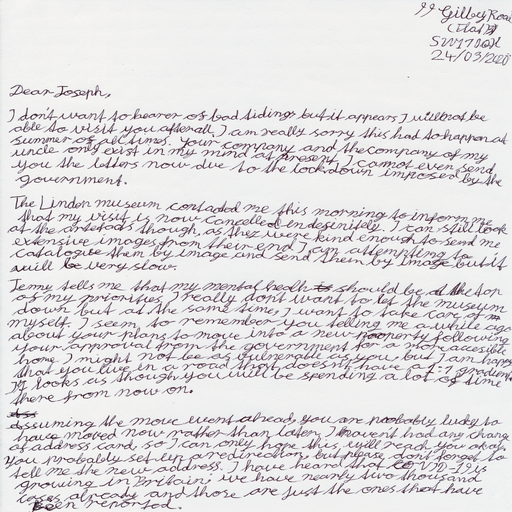 99 Gilbey Road
(Flat
SW17 0QH
24/03/2020
Dear Joseph,
I don't want to bearer of bad tidings but it appears I will not be
able to visit you afterall. I am really sorry this had to happen at
summer of all times. Your company and the company of my
uncle only exist in my mind at present, I cannot even send
you the letters now due to the lockdown imposed by the
government.
The Linden museum contacted me this morning to inform me
that my visit is now cancelled indefinitely. I can still look
at the artefacts though, as they were kind enough to send me
extensive images from their end, I am attempting to
catalogue them by image and send them by image but it
will be very slow.
Jenny tells me that my mental health should be at the top
of my priorities, I really don't want to let the museum
down but at the same times I want to take care of
myself. I seem to remember you telling me a while ago
about your plans to move into a new property following
your approval from the government for a more accesible
home. I might not be as vulnerable as you but I am happy
that you live in a road that doesn't have a 1-1 gradient.
It looks as though you will be spending a lot of time
there from now on.
assuming the move went ahead, you are probably lucky to
have moved now rather than later, I havent had any change
of address card, so I can only hope this will reach you okay.
You probably set up a redirection, but please don't forget to
tell me the new address. I have heard that COVID-19 is
growing in Britain; we have nearly two thousand
cases already and those are just the ones that have
been reported.